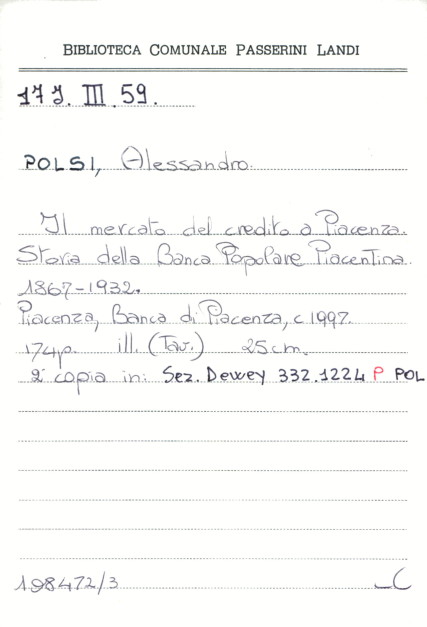 BIBLIOTECA COMUNALE PASSERINI LANDI
17 J. III. 59.
POLSI, Alessandro.
Il mercato del credito a Piacenza.
Storia della Banca Popolare Piacentina
1867-1932.
Piacenza, Banca di Piacenza, c 1997.
174p. ill. (Tav.) 25 cm.
2ª copia in: Sez. Dewey 332.1224 P POL
198472/3